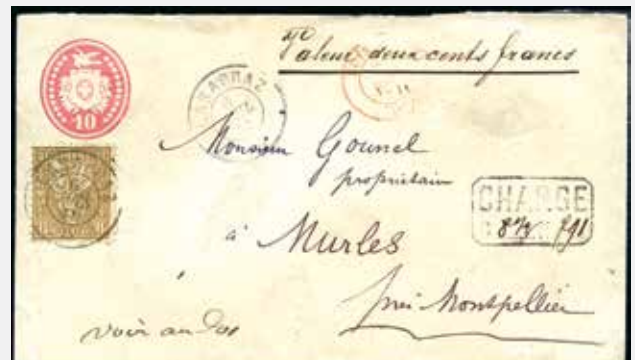 Valeur deux cents francs
10
SARRAZ
Monsieur Gounel
propriétaire
CHARGE
à Murles
près Montpellier
voir au dos